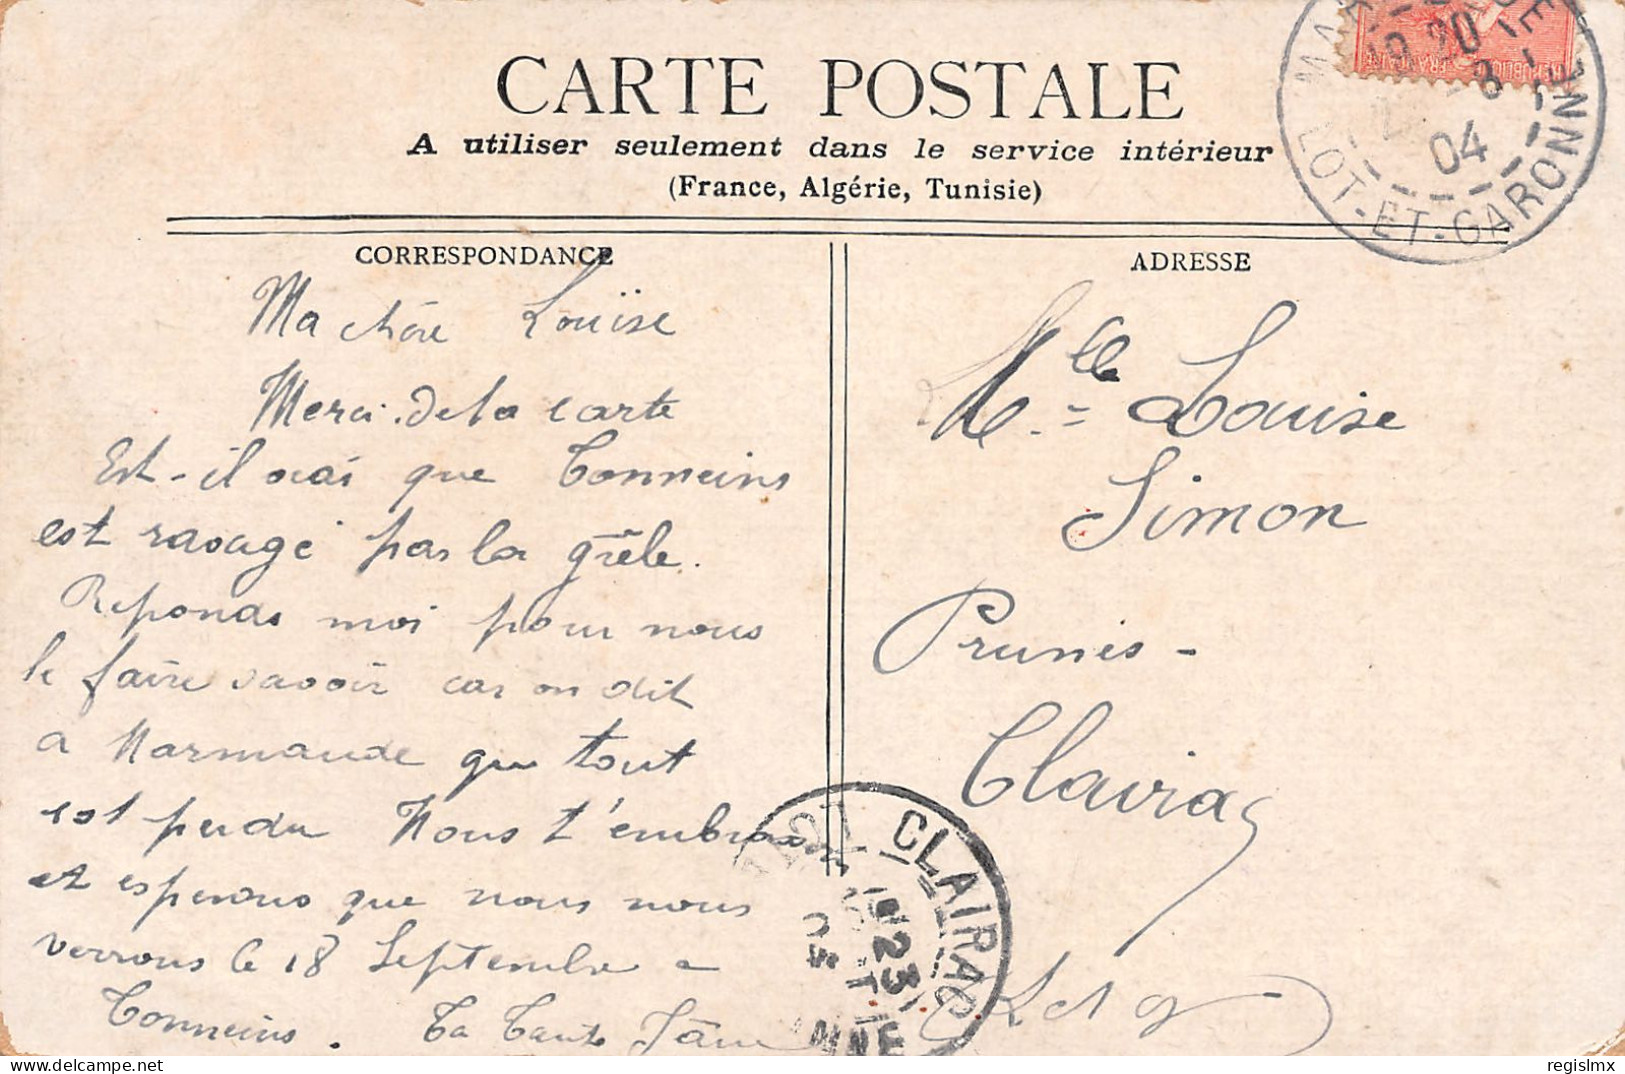 CARTE POSTALE
A utiliser seulement dans le service intérieur
(France, Algérie, Tunisie)
CORRESPONDANCE
Ma chère Louïse
Merci de la carte
Est-il vrai que Tonneins
est ravagé par la grêle.
Reponds moi pour nous
le faire savoir car on dit
a Marmande que tout
est perdu Nous t'embrassons
et esperons que nous nous
verrons le 18 Septembre a
Tonneins. Ta Tante
ADRESSE
Mlle Louise
Simon
Prunis-
Clairac
L et G
REPUBLIQUE FRANCAISE
8
04
LOT-ET-GARONNE
CLAIRAC
23
04
regislmx
delcampe.net